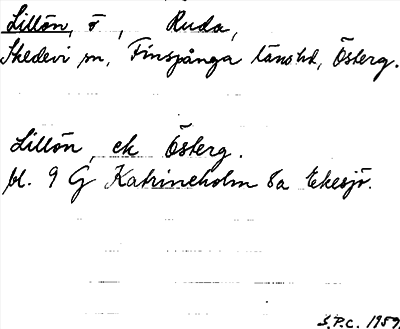 Lillön, ö, Ruda,
Skedevi sn, Finspånga länshd, Österg.
Lillön, ek Österg.
bl. 9 G Katrineholm 8a Ekesjö.
S.P.C. 1959.